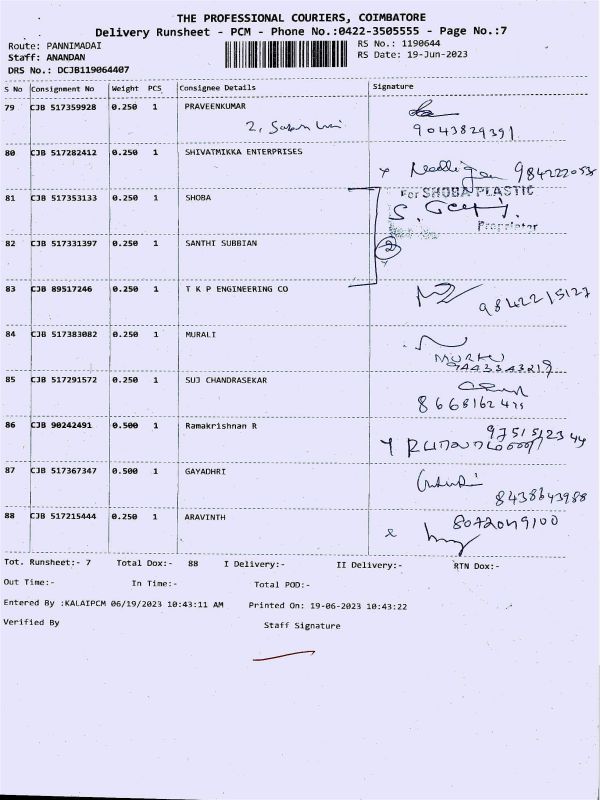 THE PROFESSIONAL COURIERS, COIMBATORE
Delivery Runsheet - PCM - Phone No.:0422-3505555 - Page No.:7
Route: PANNIMADAI RS No.: 1190644
Staff: ANANDAN RS Date: 19-Jun-2023
DRS No.: DCJB119064407
S No Consignment No Weight PCS Consignee Details Signature
79 CJB 517359928 0.250 1 PRAVEENKUMAR
9043829391
80 CJB 517282412 0.250 1 SHIVATMIKKA ENTERPRISES
81 CJB 517353133 0.250 1 SHOBA
For SHOBA PLASTIC
Proprietor
82 CJB 517331397 0.250 1 SANTHI SUBBIAN
2
83 CJB 89517246 0.250 1 T K P ENGINEERING CO
9842215127
84 CJB 517383082 0.250 1 MURALI
9442343219
85 CJB 517291572 0.250 1 SUJ CHANDRASEKAR
86 CJB 90242491 0.500 1 Ramakrishnan R
9751512344
87 CJB 517367347 0.500 1 GAYADHRI
8438643988
88 CJB 517215444 0.250 1 ARAVINTH
Tot. Runsheet:- 7 Total Dox:- 88 I Delivery:- II Delivery:- RTN Dox:-
Out Time:- In Time:- Total POD:-
Entered By :KALAIPCM 06/19/2023 10:43:11 AM Printed On: 19-06-2023 10:43:22
Verified By Staff Signature